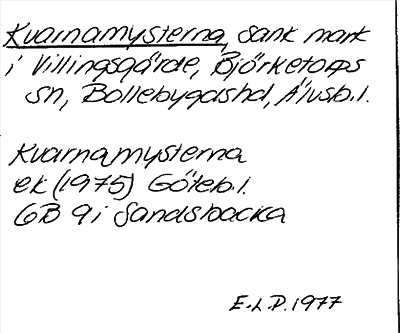 Kvarnamysterna, Sank mark
i Villingsgärde, Björketorps
sn, Bollebygdshd, Älvsb.l.
Kvarnamysterna
ek (1975) Göteb.l.
6B 9i Sandsbacka
E.L.P. 1977